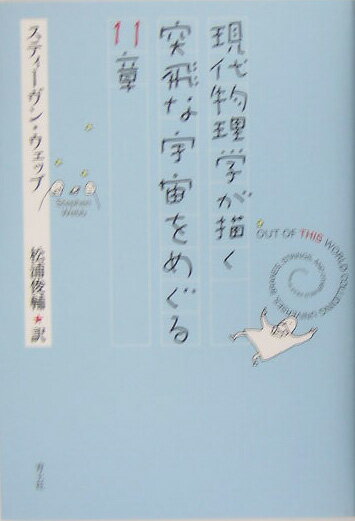 現代物理学が描く
突飛な宇宙をめぐる
11章
スティーヴン・ウェッブ
Stephen Webb
松浦俊輔★訳
OUT OF THIS WORLD COLLIDING UNIVERSES, BRANES, STRINGS, AND
青土社